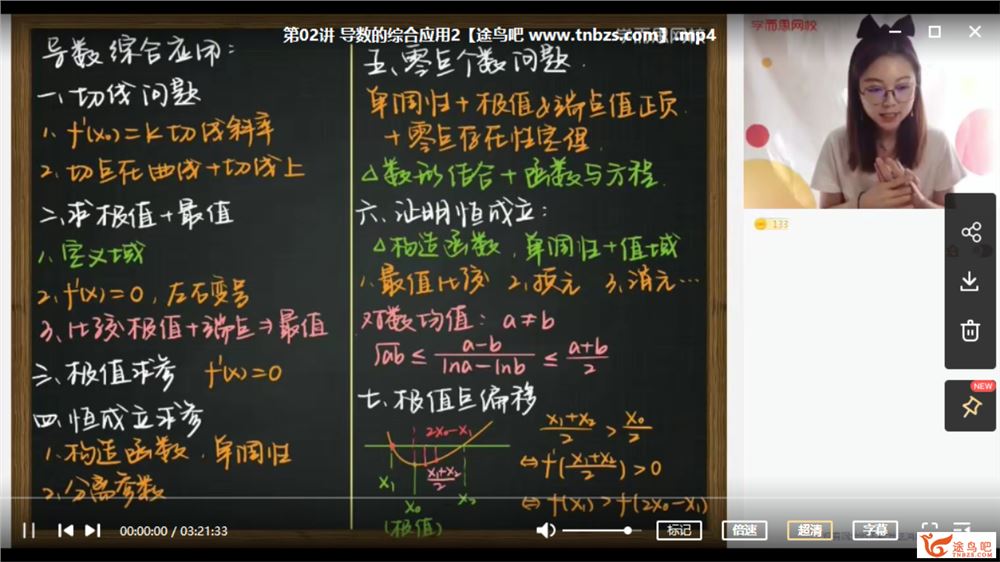 第02讲 导数的综合应用2【途鸟吧 www.tnbzs.com】.mp4
学而思网校
导数综合应用：
一、切线问题
1. f'(x₀)=k 切线斜率
2. 切点在曲线+切线上
二、求极值+最值
1. 定义域
2. f'(x)=0, 左右变号
3. 比较极值+端点⇒最值
三、极值求参 f'(x)=0
四、恒成立求参
1. 构造函数, 单调性
2. 分离参数
五、零点个数问题.
单调性+极值&端点值正负
+零点存在性定理.
△数形结合+函数与方程.
六、证明恒成立:
△构造函数, 单调性+值域
1. 最值比较 2. 换元 3. 消元…
对数均值: a≠b
√ab ≤ (a-b)/(lna-lnb) ≤ (a+b)/2
七、极值点偏移
2x₀-x₁
x₁
x₀
(极值)
(x₁+x₂)/2
x₂
(x₁+x₂)/2 > x₀/2
⇔ f'((x₁+x₂)/2)>0
⇔ f(x₁)>f(2x₀-x₁)
学而思网校
133
NEW
00:00:00 / 03:21:33
标记
倍速
超清
字幕
途鸟吧
TNBZS.COM